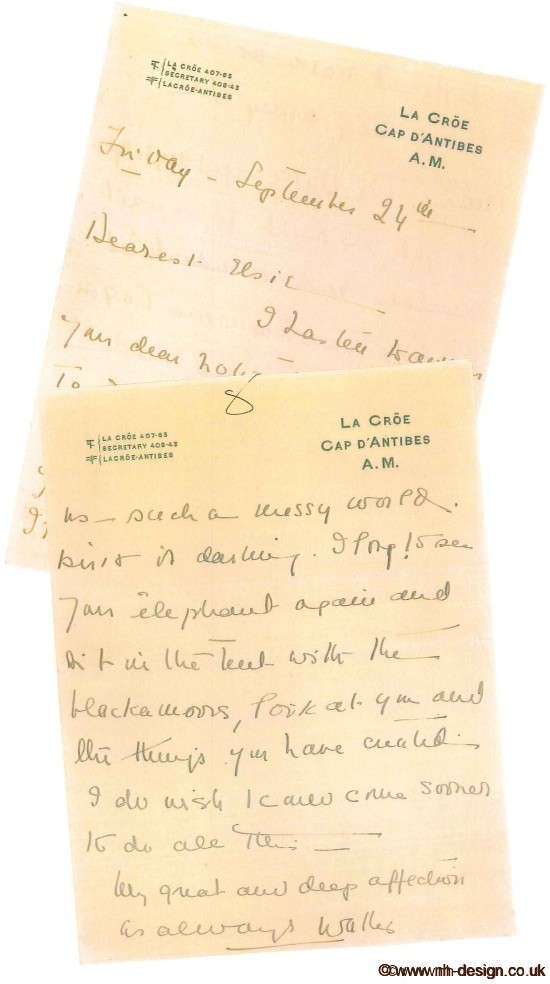 LA CRÖE 407-65
SECRETARY 408-43
LACRÖE-ANTIBES
LA CRÖE
CAP D'ANTIBES
A.M.
Friday - September 24th
Dearest Elsie
I hasten to
Your dear
To
8
LA CRÖE 407-65
SECRETARY 408-43
LACRÖE-ANTIBES
LA CRÖE
CAP D'ANTIBES
A.M.
us - such a messy world.
isn't it darling. I long to see
your elephant again and
sit in the tent with the
blackamoors, look at you and
the things you have created -
I do wish I could come sooner
to do all this -
My great and deep affection
as always Wallis
©www.nth-design.co.uk